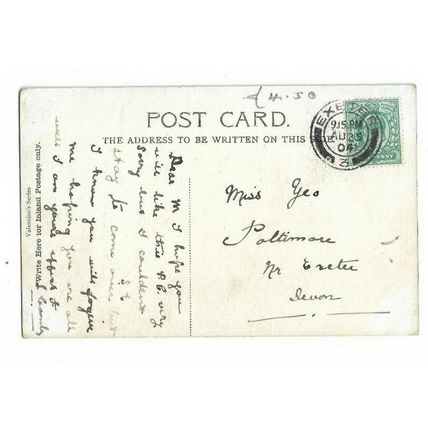 £4.50
POST CARD.
THE ADDRESS TO BE WRITTEN ON THIS SIDE.
Valentine's Series
Write Here for Inland Postage only.
Dear M I hope you
will like this P.C. very
sorry but I couldent
stay to come over but
I know you will forgive
me hoping you are all
well I am yours
Miss Yeo
Poltimore
Nr Exeter
Devon
EXETER
9.15 PM
AU 25
04
3
PENNY